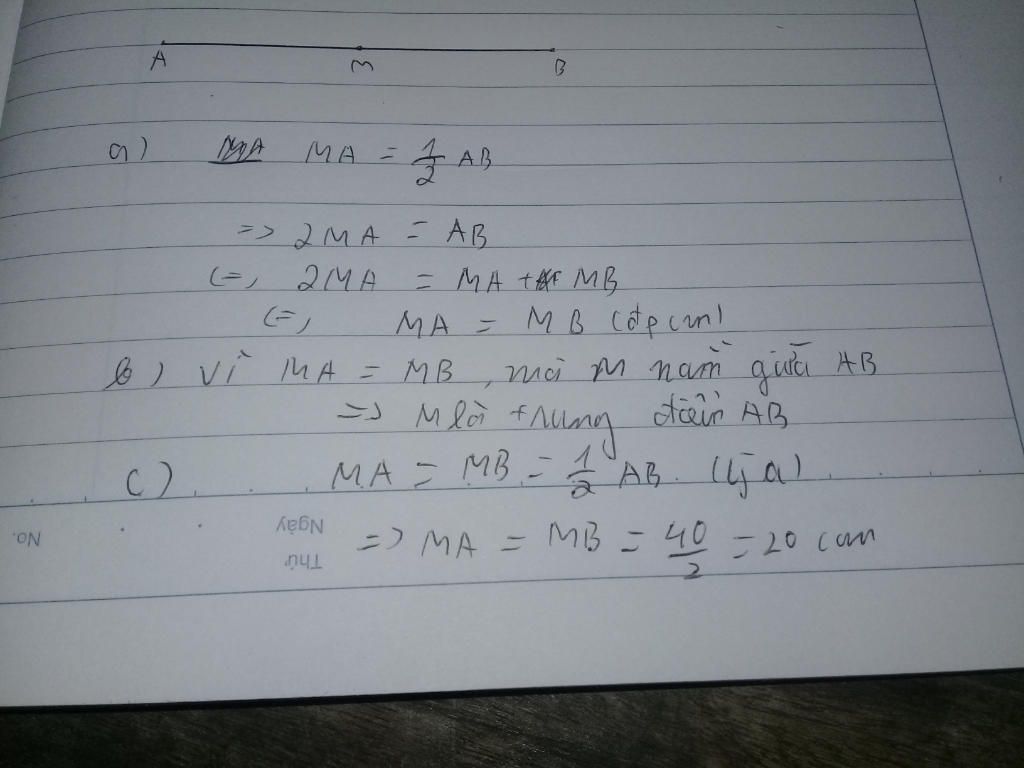 A M B
a) MA = 1/2 AB
=> 2MA = AB
<=> 2MA = MA + MB
<=> MA = MB (đpcm)
b) Vì MA = MB, mà M nằm giữa AB
=> M là trung điểm AB
c) MA = MB = 1/2 AB. (Từ a)
=> MA = MB = 40/2 = 20 cm
No.
Ngày
Thứ